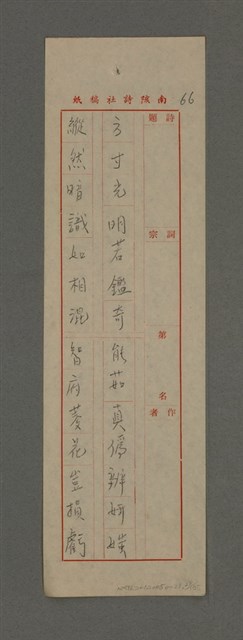 南陔詩社稿紙
66
詩題
詞宗
第 名
作者
方寸光明若鑑奇能茹真偽辨妍媸
縱然暗識如相混智府葵花豈損虧